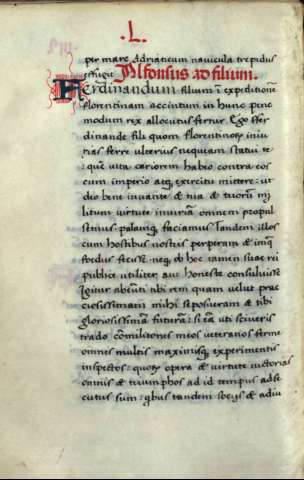 .L.
per mare Adriaticum navicula trepidus
effugit Alfonsus ad filium.
Ferdinandum filium ī expeditionē
florentinam accintum in hunc pene
modum rex allocutus fertur. Ego ffer
dinande fili quom florentinorū iniu
rias ferre ulterius nequeam statui te
quē vita cariorem habeo contra eos
cum imperio atqꝫ exercitu mittere: ut
deo bene iuvante & tua & tuorū mi
litum virtute iniuriā omnem propul
semus: palamqꝫ faciamus tandem illos
cum hostibus nostris perperam &
foedus fecisse neqꝫ ob hoc tamen suae rei
publice utiliter aut honeste consuluisse
Igitur abeūti tibi rem quam velut prae
ciosissimam mihi seposueram & tibi
gloriosissimā futurā: si eā uti sciveris
trado cōmilitones meos veteranos ferme
omnes multis maximisqꝫ experimentis
inspectos: quorū opera & virtute victorias
omnis & triumphos ad id tempus adse
cutus sum: qbus tandem socijs & adiu